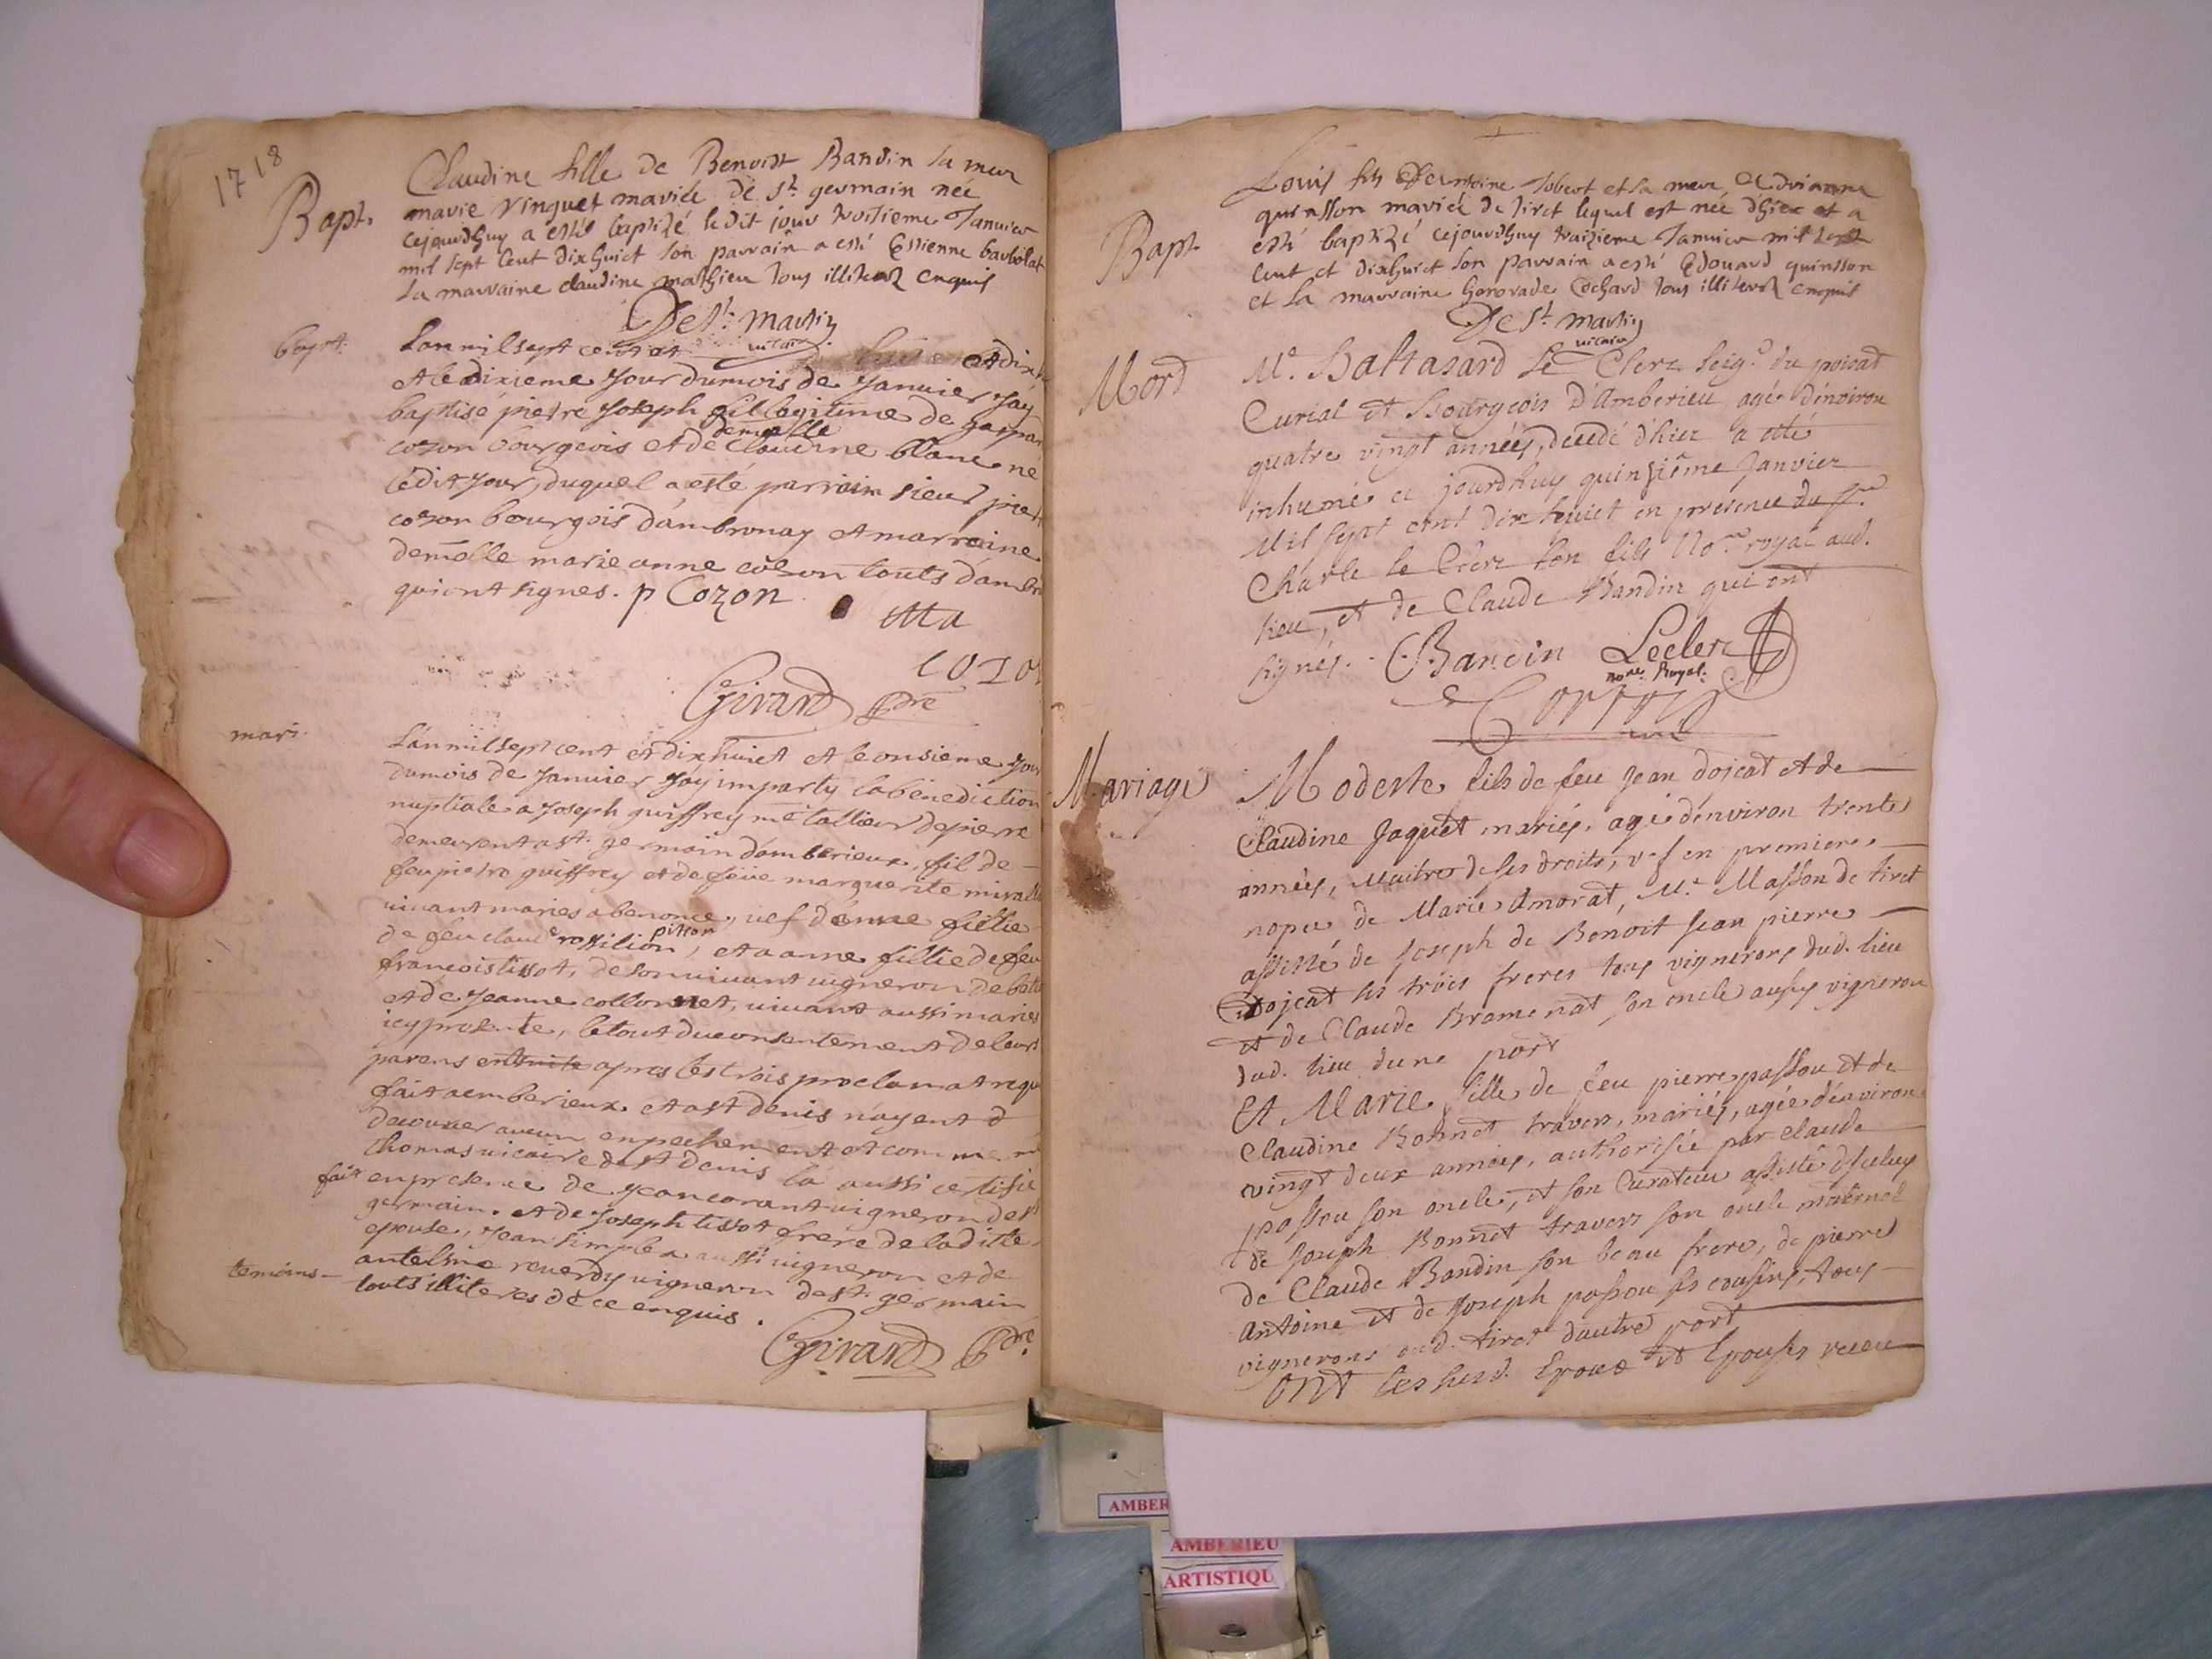 1718
Bapt.
Claudine fille de Benoist Bandin sa mere
marie vinquet mariée de St. germain née
cejourdhuy a esté baptizé le dit jour troisieme Januier
mil sept cent dixhuict son parrain a esté Estienne barbolat
sa marraine claudine mathieu tous illiterez enquis
De St. martin
vicaire
bapt.
Lan mil sept cent et et dix
et le dixieme jour du mois de Januier jay
baptisé pierre Joseph fil legitime de gaspar
cozon bourgeois et de demoelle Clauderne blanc né
ledit jour, duquel a esté parrain sieur pier
cozon bourgois d'ambronay et marraine
demoelle marie anne cozon touts d'ambr
qui ont signes. p Cozon
Ma
cozon
Girard pbre
mari.
Lan mil sept cent et dix huict et le onsieme jour
du mois de Januier jay imparty la benediction
nuptiale a Joseph guiffrey me tallieur de pierre
demeurent a st. germain d'amberieux, fil de
feu pierre guiffrey et de feüe marguerite
vivant maries a benonce, vef d'anne fillie
de feu claude rossilion pitton, et a anne fillie de feu
francois tissot, de son vivant vigneron de
et de Jeanne collomet, vivant aussi maries
icy presente, le tout du consentement de leurs
parens ensuite apres les trois proclamat requ
fait a emberieux et a st denis n'ayent d
decouver aucun enpechement et comme mr
thomas vicaire de st denis la aussi certifié
fait en presence de jean corant vigneron de st
germain. et de Joseph tissot frere de la ditte
epouse, jean simplex aussi vigneron et de
temoins antelme reverdy vigneron de st. germain
touts illiteres de ce enquis.
Girard pbre
Bapt.
Louis fils d'Anthoine Jobert et sa mere Adrianne
quinsson mariée de tiret lequel est née d'hier et a
esté baptizé cejourdhuy traizieme Januier mil sept
cent et dixhuict son parrain a esté Edouard quinsson
et sa marraine honorade Cochard tous illiterez enquis
De St. martin
vicaire
Mord
Me. Baltazard Le Clerc seigr. du poisat
Curial et Bourgeois D'Amberieu, agé d'environ
quatre vingt années, decedé d'hier a été
inhumé ce jourdhuy quinsiême Janvier
Mil sept cent dix huict en presence du Sr.
Charle le Clerc son fils No.re royal aud.
lieu, et de Claude Bandin qui ont
signés. C. Bandin Leclerc
nore. Royal.
Mariage
Modeste fils de feu Jean dojcat et de
Claudine Jaquet mariés, agé d'environ trente
années, Maitre de ses droits, vef en premiere
nopce de Marie Amorat, Me. Masson de tiret
assisté de Joseph de Benoit Jean pierre
dojcat ses trois freres tous vignerons dud. lieu
et de Claude Bramenat son oncle aussy vigneron
dud. lieu d'une part
Et Marie fille de feu pierre passou et de
Claudine Bonnet travers, mariés, agée d'environ
vingt deux années, authorisée par claude
passou son oncle, et son Curateur assisté d'iceluy
de Joseph Bonnet travers son oncle maternel
de Claude Bandin son beau frere, de pierre
Antoine et de Joseph passou ses cousins, tous
vignerons aud. tiret d'autre part
Ont lesd. Epoux et Epouses receu
AMBER
AMBERIEU
ARTISTIQU